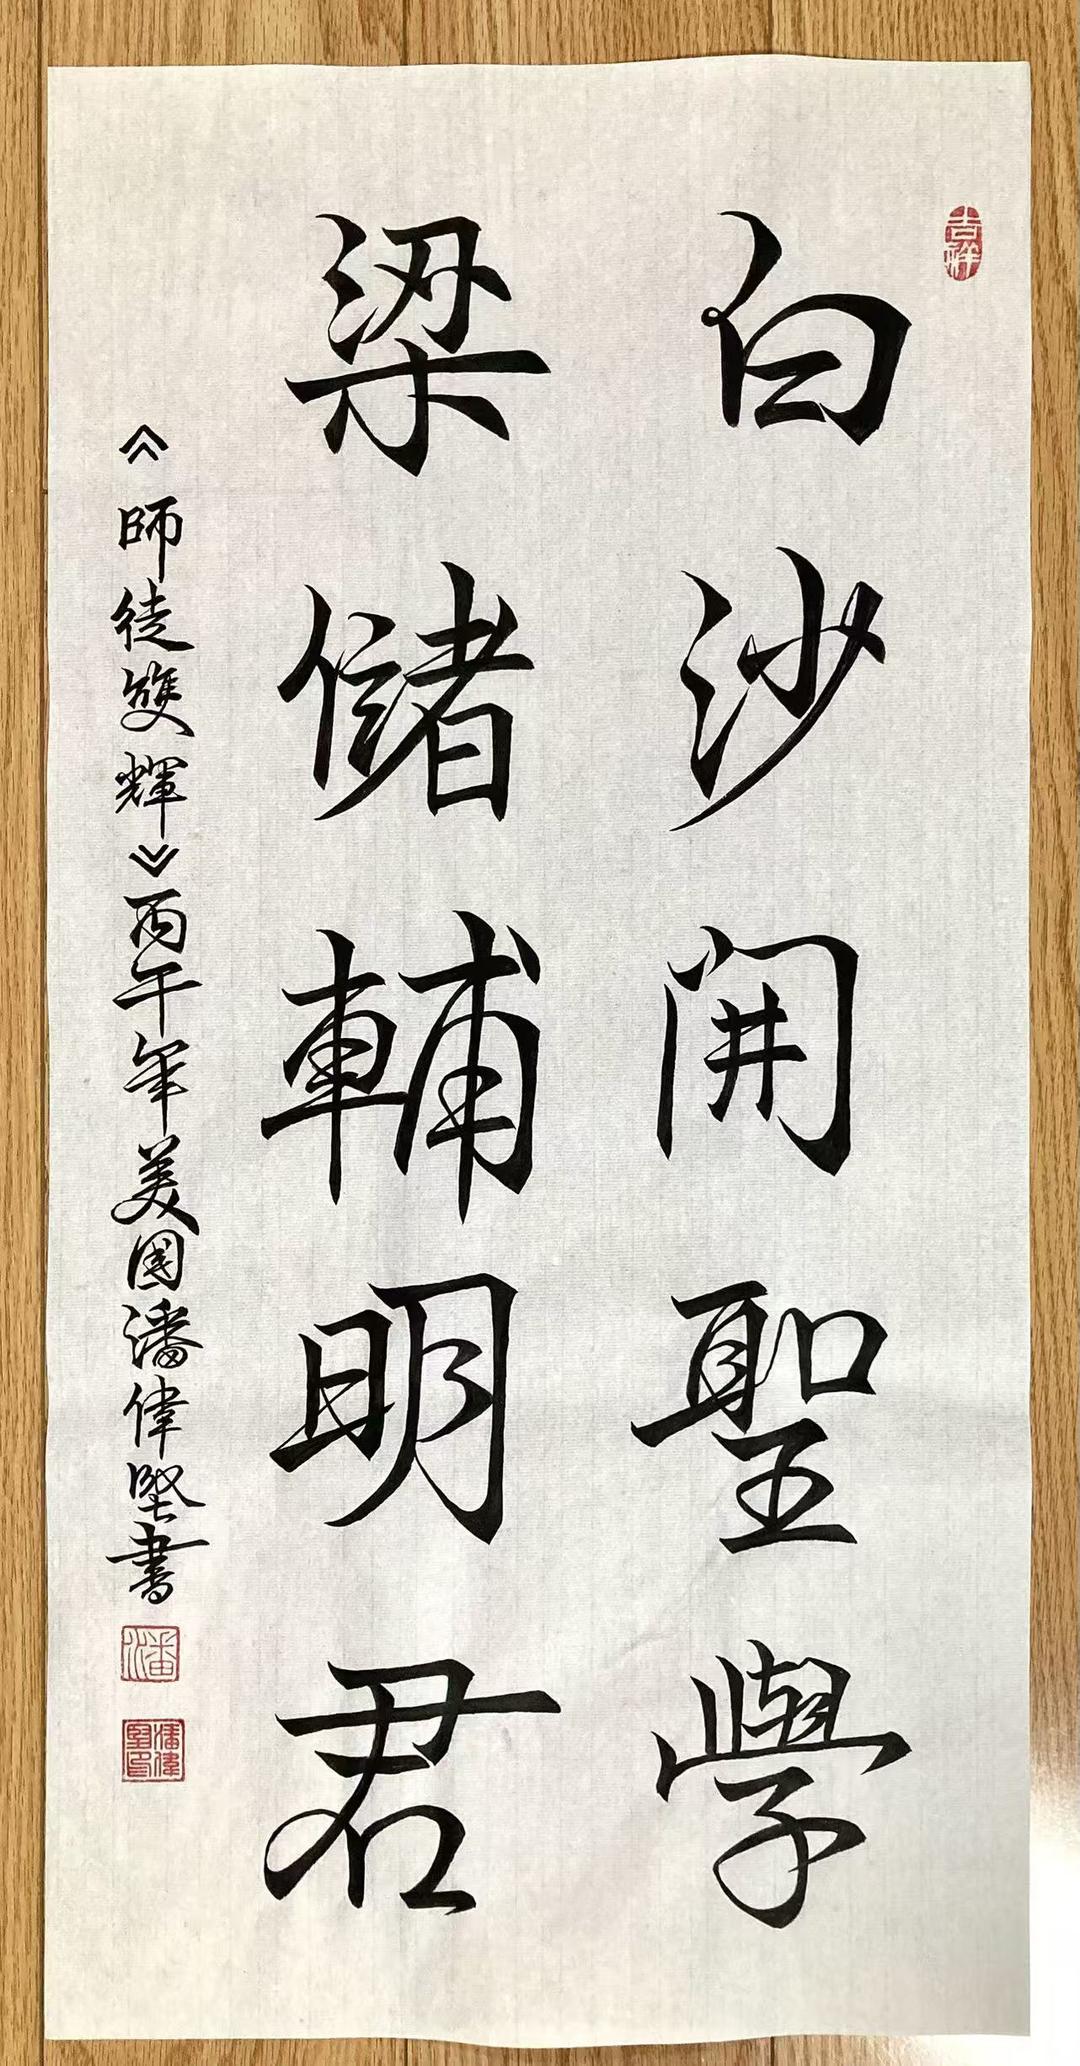 吉祥
白沙開聖學
梁儲輔明君
《師徒雙輝》丙午年美國潘偉堅書
潘
潘偉堅印